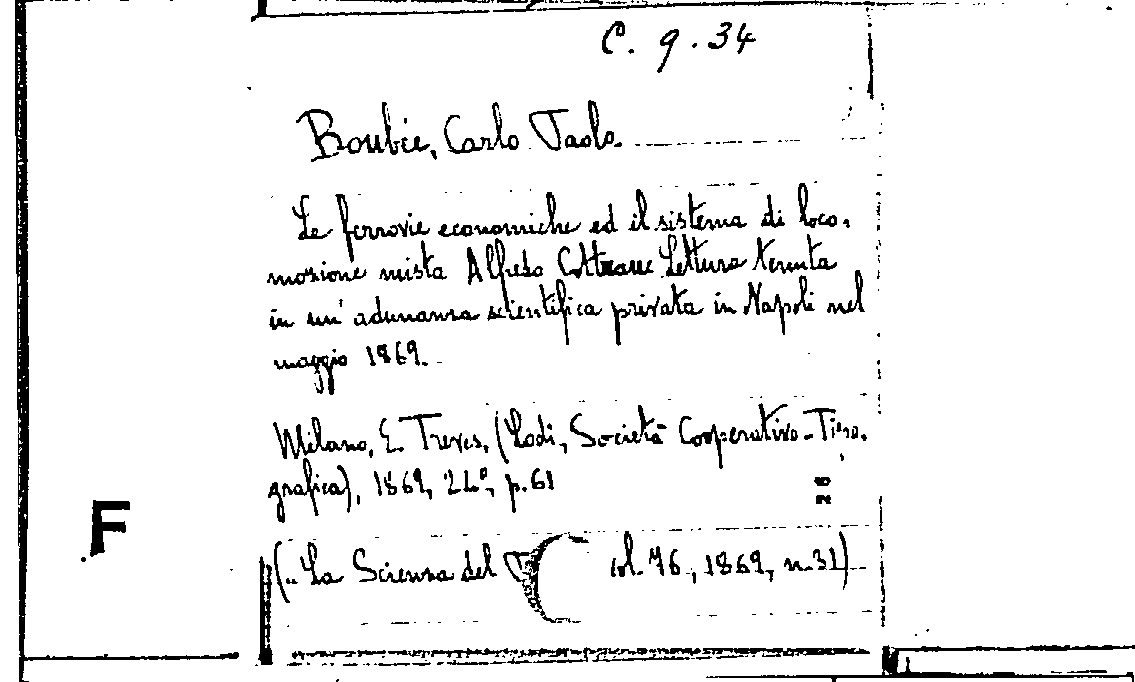 C. 9. 34
Boubée, Carlo Paolo.
Le ferrovie economiche ed il sistema di loco-
mozione mista Alfredo Cottrau: Lettura tenuta
in un' adunanza scientifica privata in Napoli nel
maggio 1869.
Milano, E. Treves, (Lodi, Società Cooperativo-Tipo-
grafica), 1869, 24°, p. 61
F
(„La Scienza del ol. 76, 1869, n. 31)